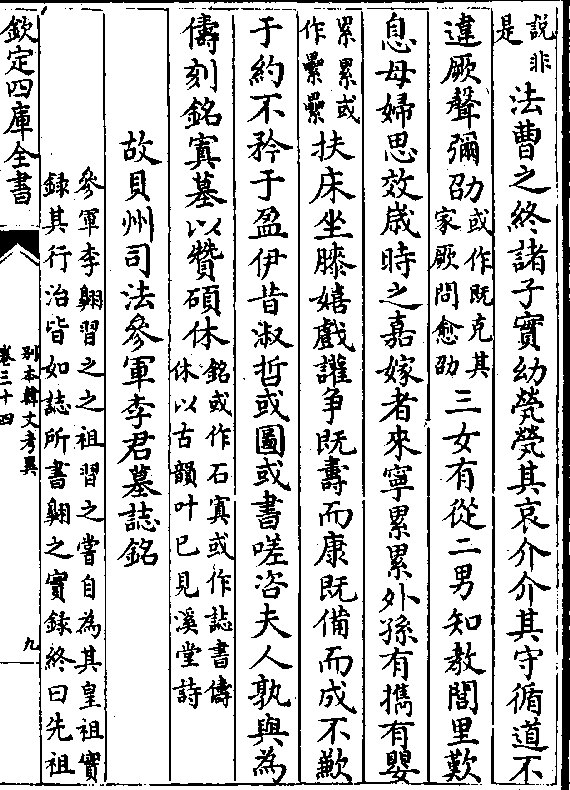 說非是法曹之終諸子實幼煢煢其哀介介其守循道不
違厥聲彌劭或作既克其家厥問愈劭三女有從二男知教閭里歎
息母婦思效歲時之嘉嫁者來寧累累外孫有攜有嬰
累累或作纍纍扶床坐膝嬉戲讙爭既壽而康既備而成不歉
于約不矜于盈伊昔淑哲或圖或書嗟咨夫人孰與為
儔刻銘寘墓以贊碩休銘或作石寘或作誌書儔休以古韻叶已見溪堂詩
故貝州司法參軍李君墓誌銘
參軍李翺習之之祖習之嘗自為其皇祖實
録其行治皆如誌所書翺之實録終曰先祖
欽定四庫全書
別本韓文考異
卷三十四
九